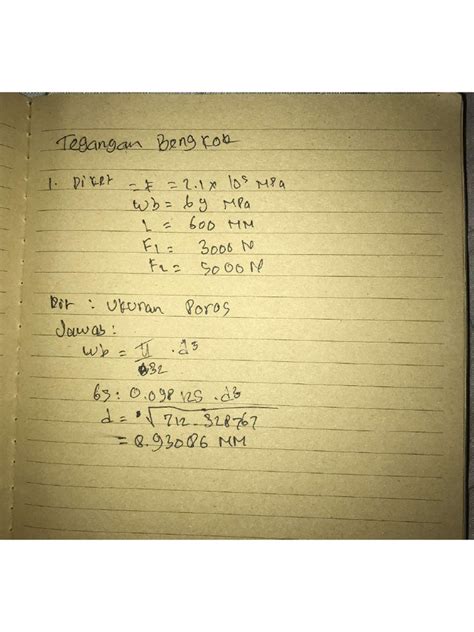 Tegangan Bengkok
1. Diket = E = 2.1 x 10⁵ MPa
Wb = 69 MPa
L = 600 MM
F1 = 3000 N
F2 = 5000 N
Dit : Ukuran Poros
Jawab :
Wb = π/32 . d³
69 : 0.098125 . d³
d = ³√712.328767
= 8.93086 MM